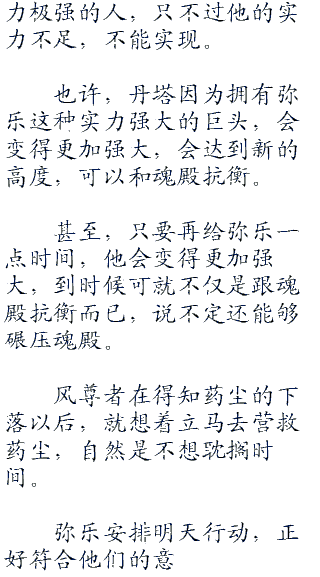 力极强的人，只不过他的实
力不足，不能实现。
也许，丹塔因为拥有弥
乐这种实力强大的巨头，会
变得更加强大，会达到新的
高度，可以和魂殿抗衡。
甚至，只要再给弥乐一
点时间，他会变得更加强
大，到时候可就不仅是跟魂
殿抗衡而已，说不定还能够
碾压魂殿。
风尊者在得知药尘的下
落以后，就想着立马去营救
药尘，自然是不想耽搁时
间。
弥乐安排明天行动，正
好符合他们的意